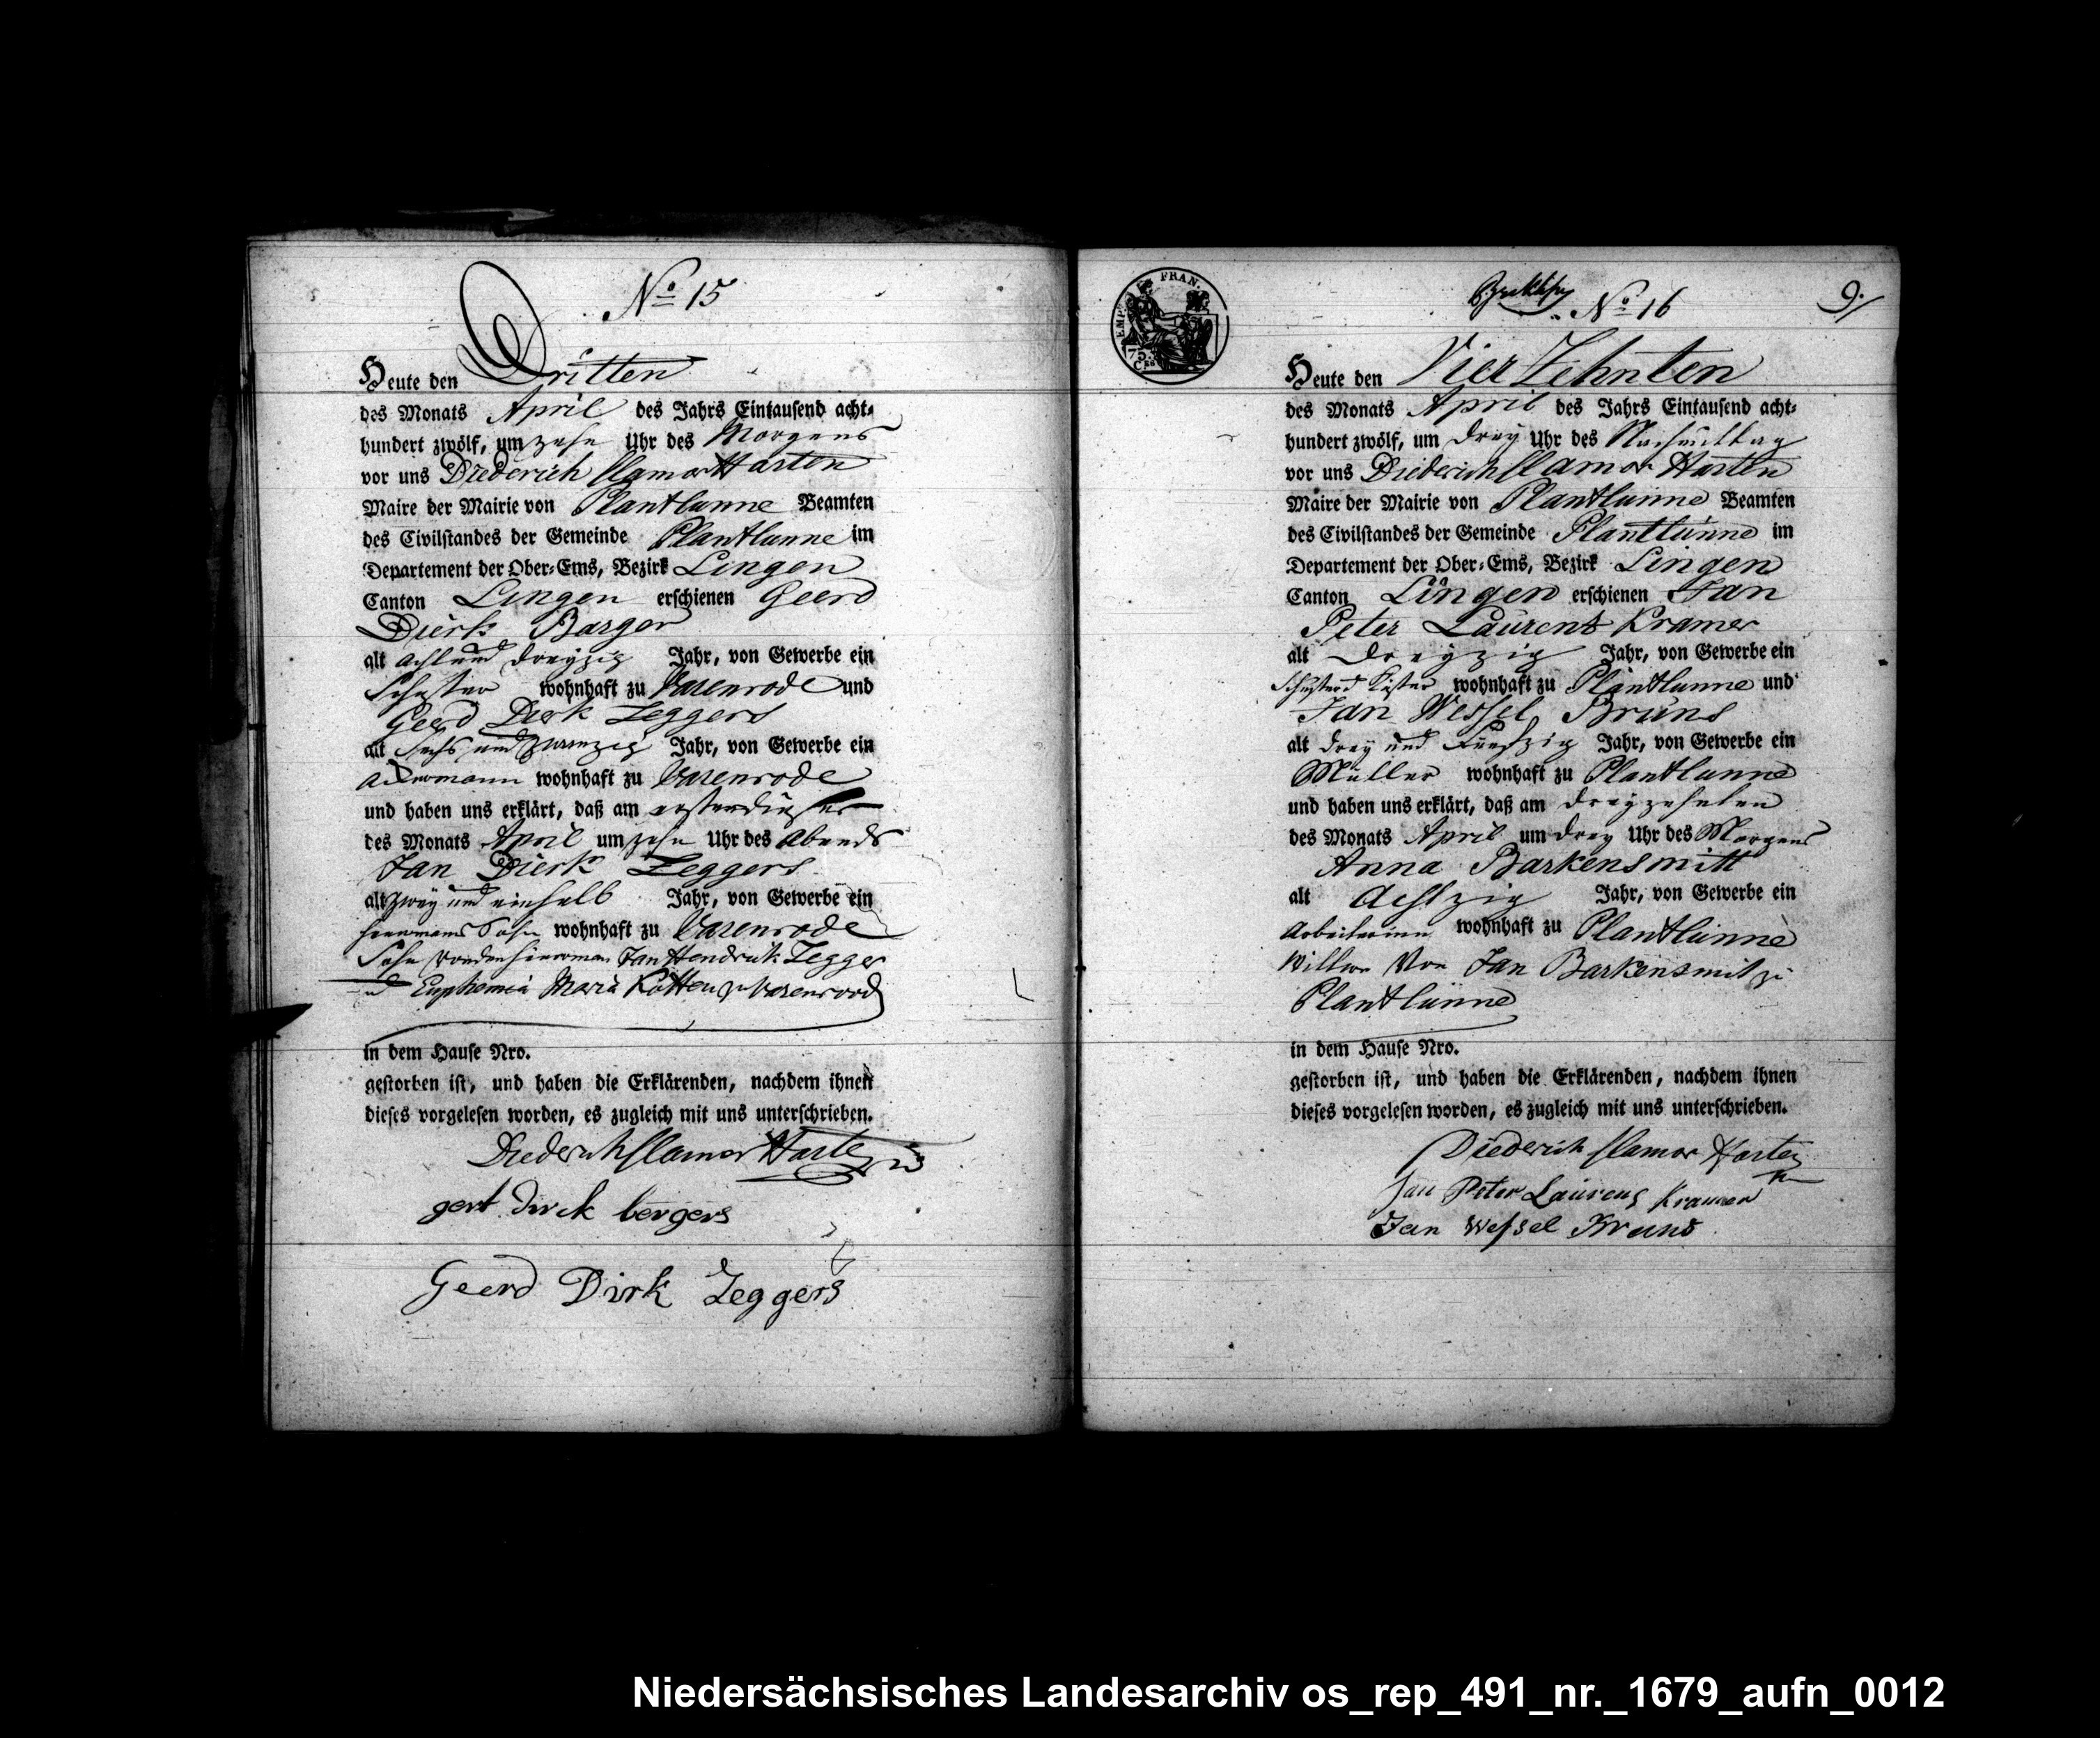 No 15
Heute den Dritten
des Monats April des Jahrs Eintausend acht-
hundert zwölf, um zehn Uhr des Morgens
vor uns Diederich Clamor Harten
Maire der Mairie von Plantlunne Beamten
des Civilstandes der Gemeinde Plantlunne im
Departement der Ober-Ems, Bezirk Lingen
Canton Lingen erschienen Geerd
Dierk Barger
alt acht und dreyzig Jahr, von Gewerbe ein
Schuster wohnhaft zu Varenrode und
Geerd Dierk Zeggers
alt sechs und zwanzig Jahr, von Gewerbe ein
ackermann wohnhaft zu Varenrode
und haben uns erklärt, daß am ersten dieses
des Monats April um zehn Uhr des abends
Jan Dierk Zeggers
alt zwey und einhalb Jahr, von Gewerbe ein
Sohn wohnhaft zu Varenrode
Sohn von den Jan Hendrik Zegger
und Euphemia Maria Kotten zu Varenrood
in dem Hause Nro.
gestorben ist, und haben die Erklärenden, nachdem ihnen
dieses vorgelesen worden, es zugleich mit uns unterschrieben.
Diederich Clamor Harten
gert dirck bergers
Geerd Dirk Zeggers
EMPIRE FRAN.
75.
Ces
No 16
9.
Heute den Vier Zehnten
des Monats April des Jahrs Eintausend acht-
hundert zwölf, um drey Uhr des Nachmittag
vor uns Diederich Clamor Harten
Maire der Mairie von Plantlünne Beamten
des Civilstandes der Gemeinde Plantlünne im
Departement der Ober-Ems, Bezirk Lingen
Canton Lingen erschienen Jan
Peter Laurens Kramer
alt Dreyzig Jahr, von Gewerbe ein
Küster wohnhaft zu Plantlunne und
Jan Wessel Brüns
alt drey und Fünfzig Jahr, von Gewerbe ein
Müller wohnhaft zu Plantlunne
und haben uns erklärt, daß am dreyzehnten
des Monats April um drey Uhr des Morgens
Anna Barkensmitt
alt Achtzig Jahr, von Gewerbe ein
Arbeiterinn wohnhaft zu Plantlünne
Wittwe Von Jan Barkensmit zu
Plantlünne
in dem Hause Nro.
gestorben ist, und haben die Erklärenden, nachdem ihnen
dieses vorgelesen worden, es zugleich mit uns unterschrieben.
Diederich Clamor Harten
Jan Peter Laurens Kramer
Jan Wessel Bruns
Niedersächsisches Landesarchiv os_rep_491_nr._1679_aufn_0012